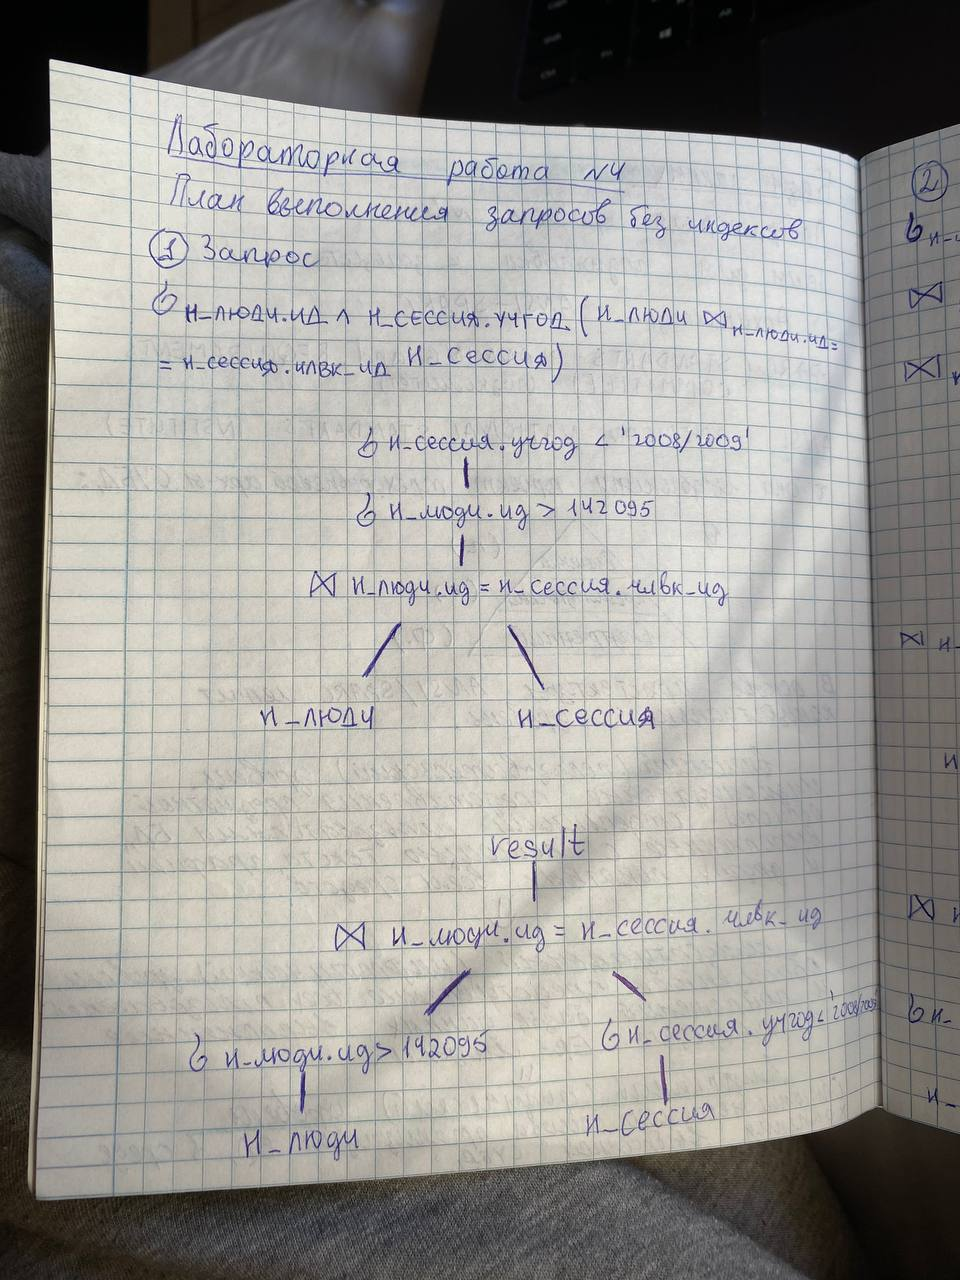 Лабораторная работа №4
План выполнения запросов без индексов
① Запрос
σ Н_ЛЮДИ.ИД ∧ Н_СЕССИЯ.УЧГОД (Н_ЛЮДИ ⋈ Н_ЛЮДИ.ИД =
= Н_СЕССИЯ.ЧЛВК_ИД Н_СЕССИЯ)
σ Н_СЕССИЯ.УЧГОД < '2008/2009'
σ Н_ЛЮДИ.ИД > 142095
⋈ Н_ЛЮДИ.ИД = Н_СЕССИЯ.ЧЛВК_ИД
Н_ЛЮДИ Н_СЕССИЯ
result
⋈ Н_ЛЮДИ.ИД = Н_СЕССИЯ.ЧЛВК_ИД
σ Н_ЛЮДИ.ИД > 142095 σ Н_СЕССИЯ.УЧГОД < '2008/2009'
Н_ЛЮДИ Н_СЕССИЯ
②
σ Н_
⋈
⋈
⋈ Н_
Н
⋈
σ Н_
Н_